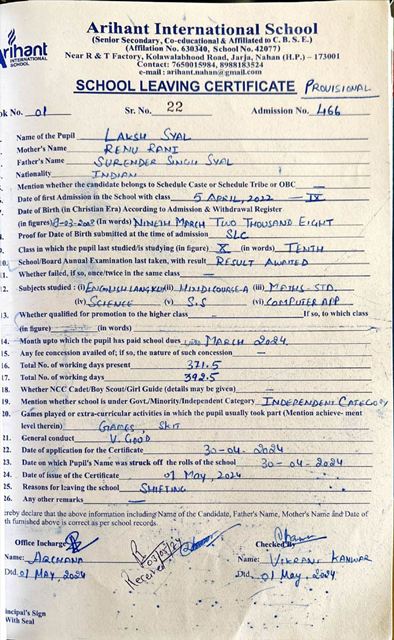 Arihant International School
(Senior Secondary, Co-educational & Affiliated to C. B. S. E.)
(Affilation No. 630340, School No. 42077)
Near R & T Factory, Kolawalabhood Road, Jarja, Nahan (H.P.) – 173001
Contact: 7650015984, 8988183524
e-mail: arihant.nahan@gmail.com
Arihant
INTERNATIONAL
SCHOOL
SCHOOL LEAVING CERTIFICATE PROVISIONAL
ok No. 01 Sr. No. 22 Admission No. 466
Name of the Pupil LAKSH SYAL
Mother's Name RENU RANI
Father's Name SURENDER SINGH SYAL
Nationality INDIAN
Mention whether the candidate belongs to Schedule Caste or Schedule Tribe or OBC —
Date of first Admission in the School with class 5 APRIL, 2022 — IX
Date of Birth (in Christian Era) According to Admission & Withdrawal Register
(in figures) 9-03-2008 (In words) NINETH MARCH TWO THOUSAND EIGHT
Proof for Date of Birth submitted at the time of admission SLC
Class in which the pupil last studied/is studying (in figure) X (in words) TENTH
10. School/Board Annual Examination last taken, with result RESULT AWAITED
11. Whether failed, if so, once/twice in the same class —
12. Subjects studied : (i) ENGLISH LANG & LIT (ii) HINDI COURSE-A (iii) MATHS-STD.
(iv) SCIENCE (v) S.S (vi) COMPUTER APP
13. Whether qualified for promotion to the higher class — If so, to which class
(in figure) (in words)
14. Month upto which the pupil has paid school dues MARCH 2024
15. Any fee concession availed of; if so, the nature of such concession —
16. Total No. of working days present 371.5
17. Total No. of working days 392.5
18. Whether NCC Cadet/Boy Scout/Girl Guide (details may be given) —
19. Mention whether school is under Govt./Minority/Independent Category INDEPENDENT CATEGORY
20. Games played or extra-curricular activities in which the pupil usually took part (Mention achieve- ment
level therein) GAMES, SKIT
21. General conduct V. GOOD
22. Date of application for the Certificate 30-04-2024
23. Date on which Pupil's Name was struck off the rolls of the school 30-04-2024
24. Date of issue of the Certificate 01 MAY, 2024
25. Reasons for leaving the school SHIFTING
26. Any other remarks —
ereby declare that the above information including Name of the Candidate, Father's Name, Mother's Name and Date of
th furnished above is correct as per school records.
Office Incharge Checked By
Name: ARCHANA Name: VIKRANT KANWAR
Dtd. 01 MAY, 2024 Received 03/05/24 Dtd. 01 May, 2024
incipal's Sign
With Seal